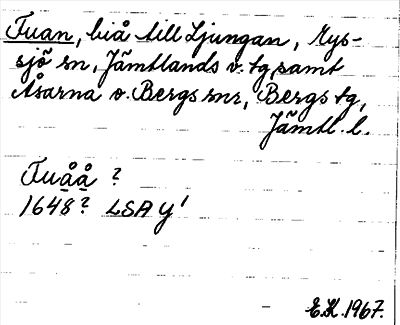 Fuan, biå till Ljungan, Rys-
sjö sn, Jämtlands v. tg, samt
Åsarna o. Bergs snr, Bergs tg,
Jämtl. l.
Fuåå ?
1648? LSA y'
E.K. 1967.